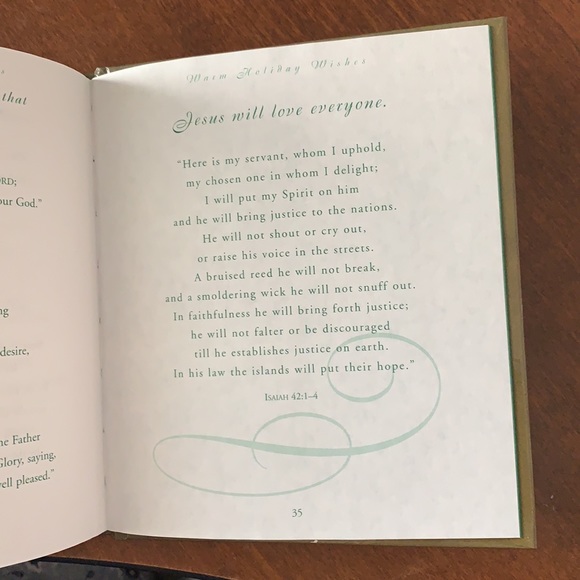 that
ORD;
our God."
ng
desire,
he Father
Glory, saying,
well pleased."
Warm Holiday Wishes
Jesus will love everyone.
"Here is my servant, whom I uphold,
my chosen one in whom I delight;
I will put my Spirit on him
and he will bring justice to the nations.
He will not shout or cry out,
or raise his voice in the streets.
A bruised reed he will not break,
and a smoldering wick he will not snuff out.
In faithfulness he will bring forth justice;
he will not falter or be discouraged
till he establishes justice on earth.
In his law the islands will put their hope."
Isaiah 42:1–4
35